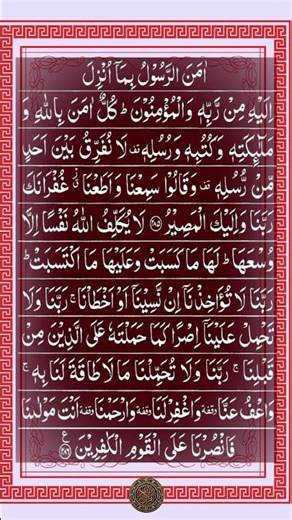 اٰمَنَ الرَّسُوْلُ بِمَاۤ اُنْزِلَ
اِلَیْهِ مِنْ رَّبِّهٖ وَالْمُؤْمِنُوْنَ ؕ كُلٌّ اٰمَنَ بِاللّٰهِ وَ
مَلٰٓىِٕكَتِهٖ وَكُتُبِهٖ وَرُسُلِهٖ قف لَا نُفَرِّقُ بَیْنَ اَحَدٍ
مِّنْ رُّسُلِهٖ قف وَقَالُوْا سَمِعْنَا وَاَطَعْنَا ؗ غُفْرَانَكَ
رَبَّنَا وَاِلَیْكَ الْمَصِیْرُ ﴿۲۸۵﴾ لَا یُكَلِّفُ اللّٰهُ نَفْسًا اِلَّا
وُسْعَهَا ؕ لَهَا مَا كَسَبَتْ وَعَلَیْهَا مَا اكْتَسَبَتْ ؕ
رَبَّنَا لَا تُؤَاخِذْنَاۤ اِنْ نَّسِیْنَاۤ اَوْ اَخْطَاْنَا ۚ رَبَّنَا وَلَا
تَحْمِلْ عَلَیْنَاۤ اِصْرًا كَمَا حَمَلْتَهٗ عَلَی الَّذِیْنَ مِنْ
قَبْلِنَا ۚ رَبَّنَا وَلَا تُحَمِّلْنَا مَا لَا طَاقَةَ لَنَا بِهٖ ۚ
وَاعْفُ عَنَّا وقفة وَاغْفِرْ لَنَا وقفة وَارْحَمْنَا وقفة اَنْتَ مَوْلٰىنَا
فَانْصُرْنَا عَلَی الْقَوْمِ الْكٰفِرِیْنَ ﴿۲۸۶﴾ ع